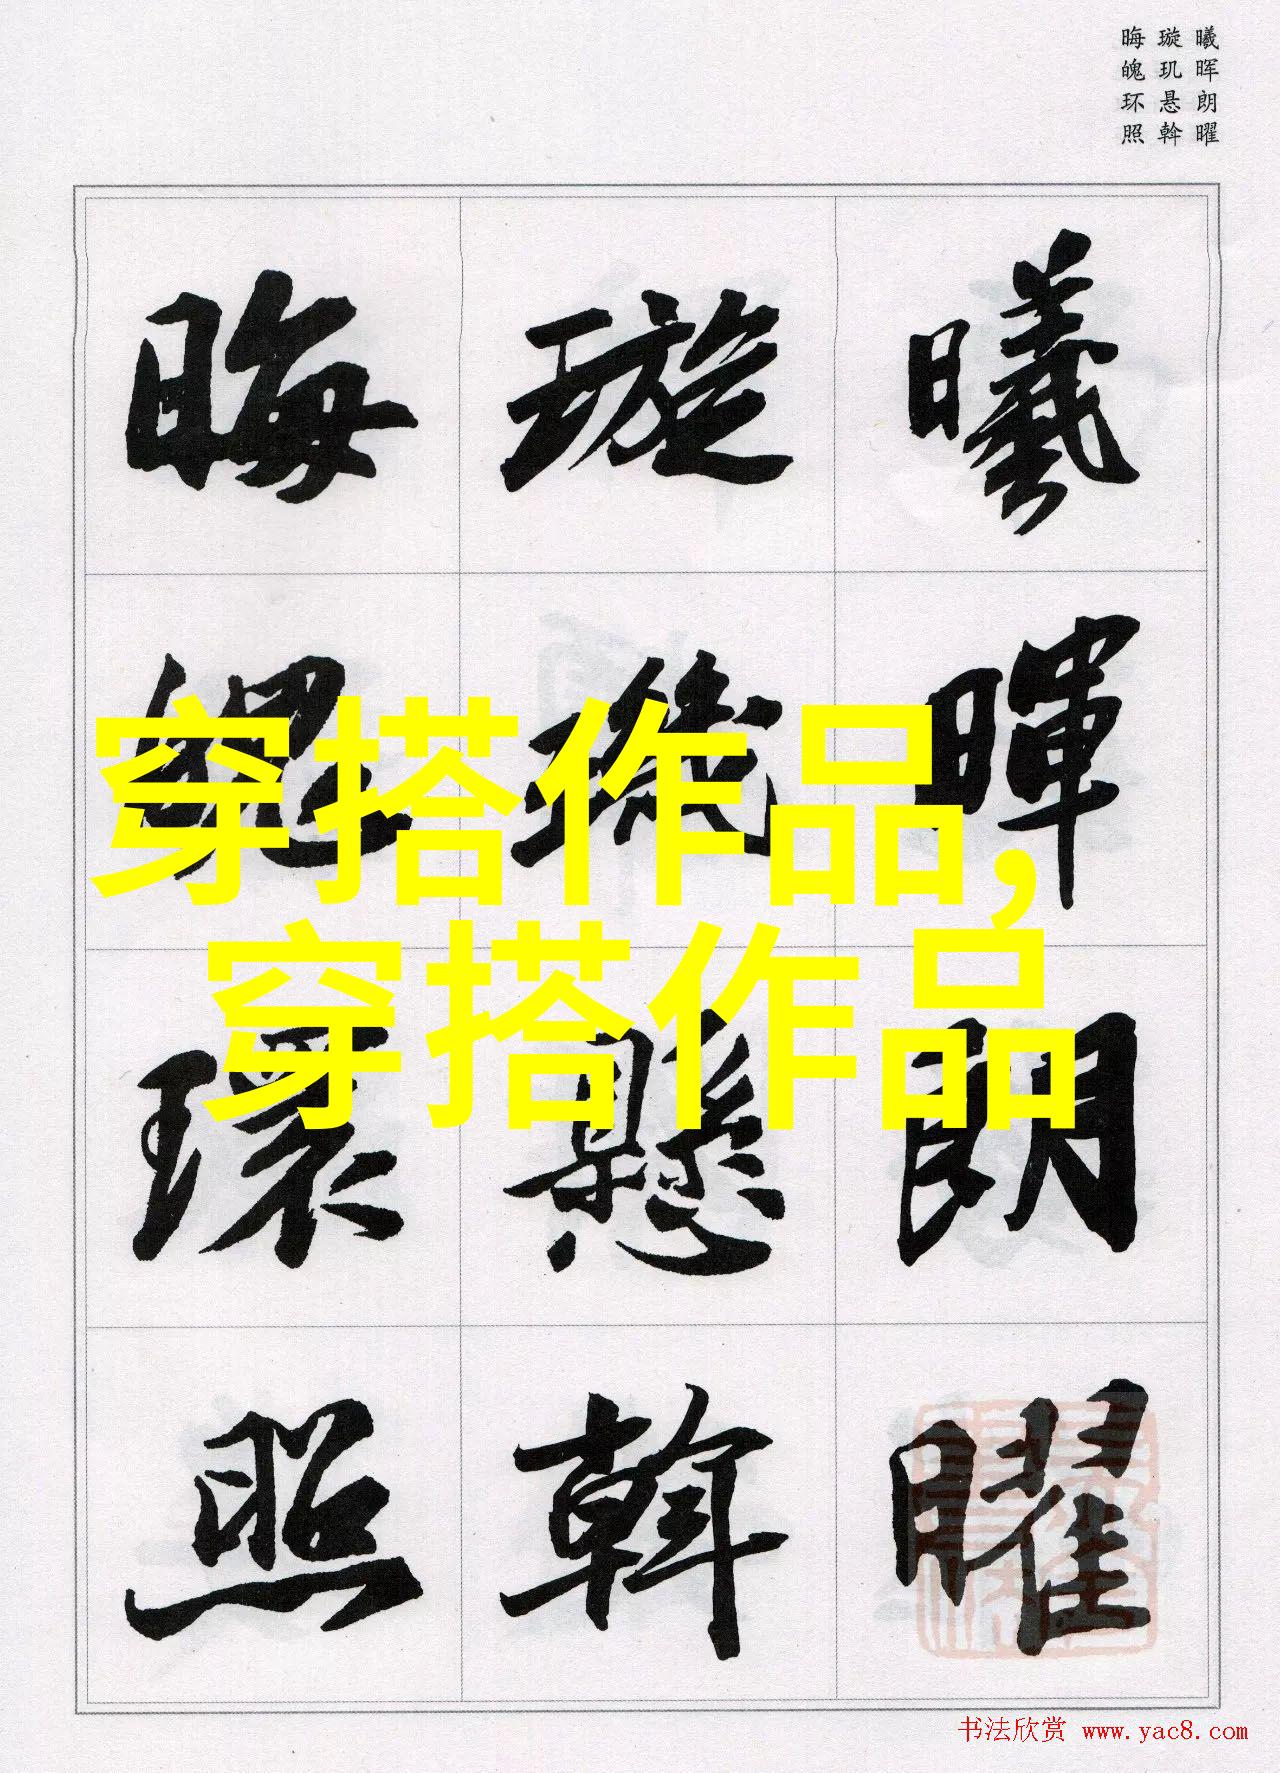 曦晖朗曜
璇玑悬斡
晦魄环照
曦暉朗曜
璇璣懸斡
晦魄環照
穿搭作品,
穿搭作品
书法欣赏 www.yac8.com